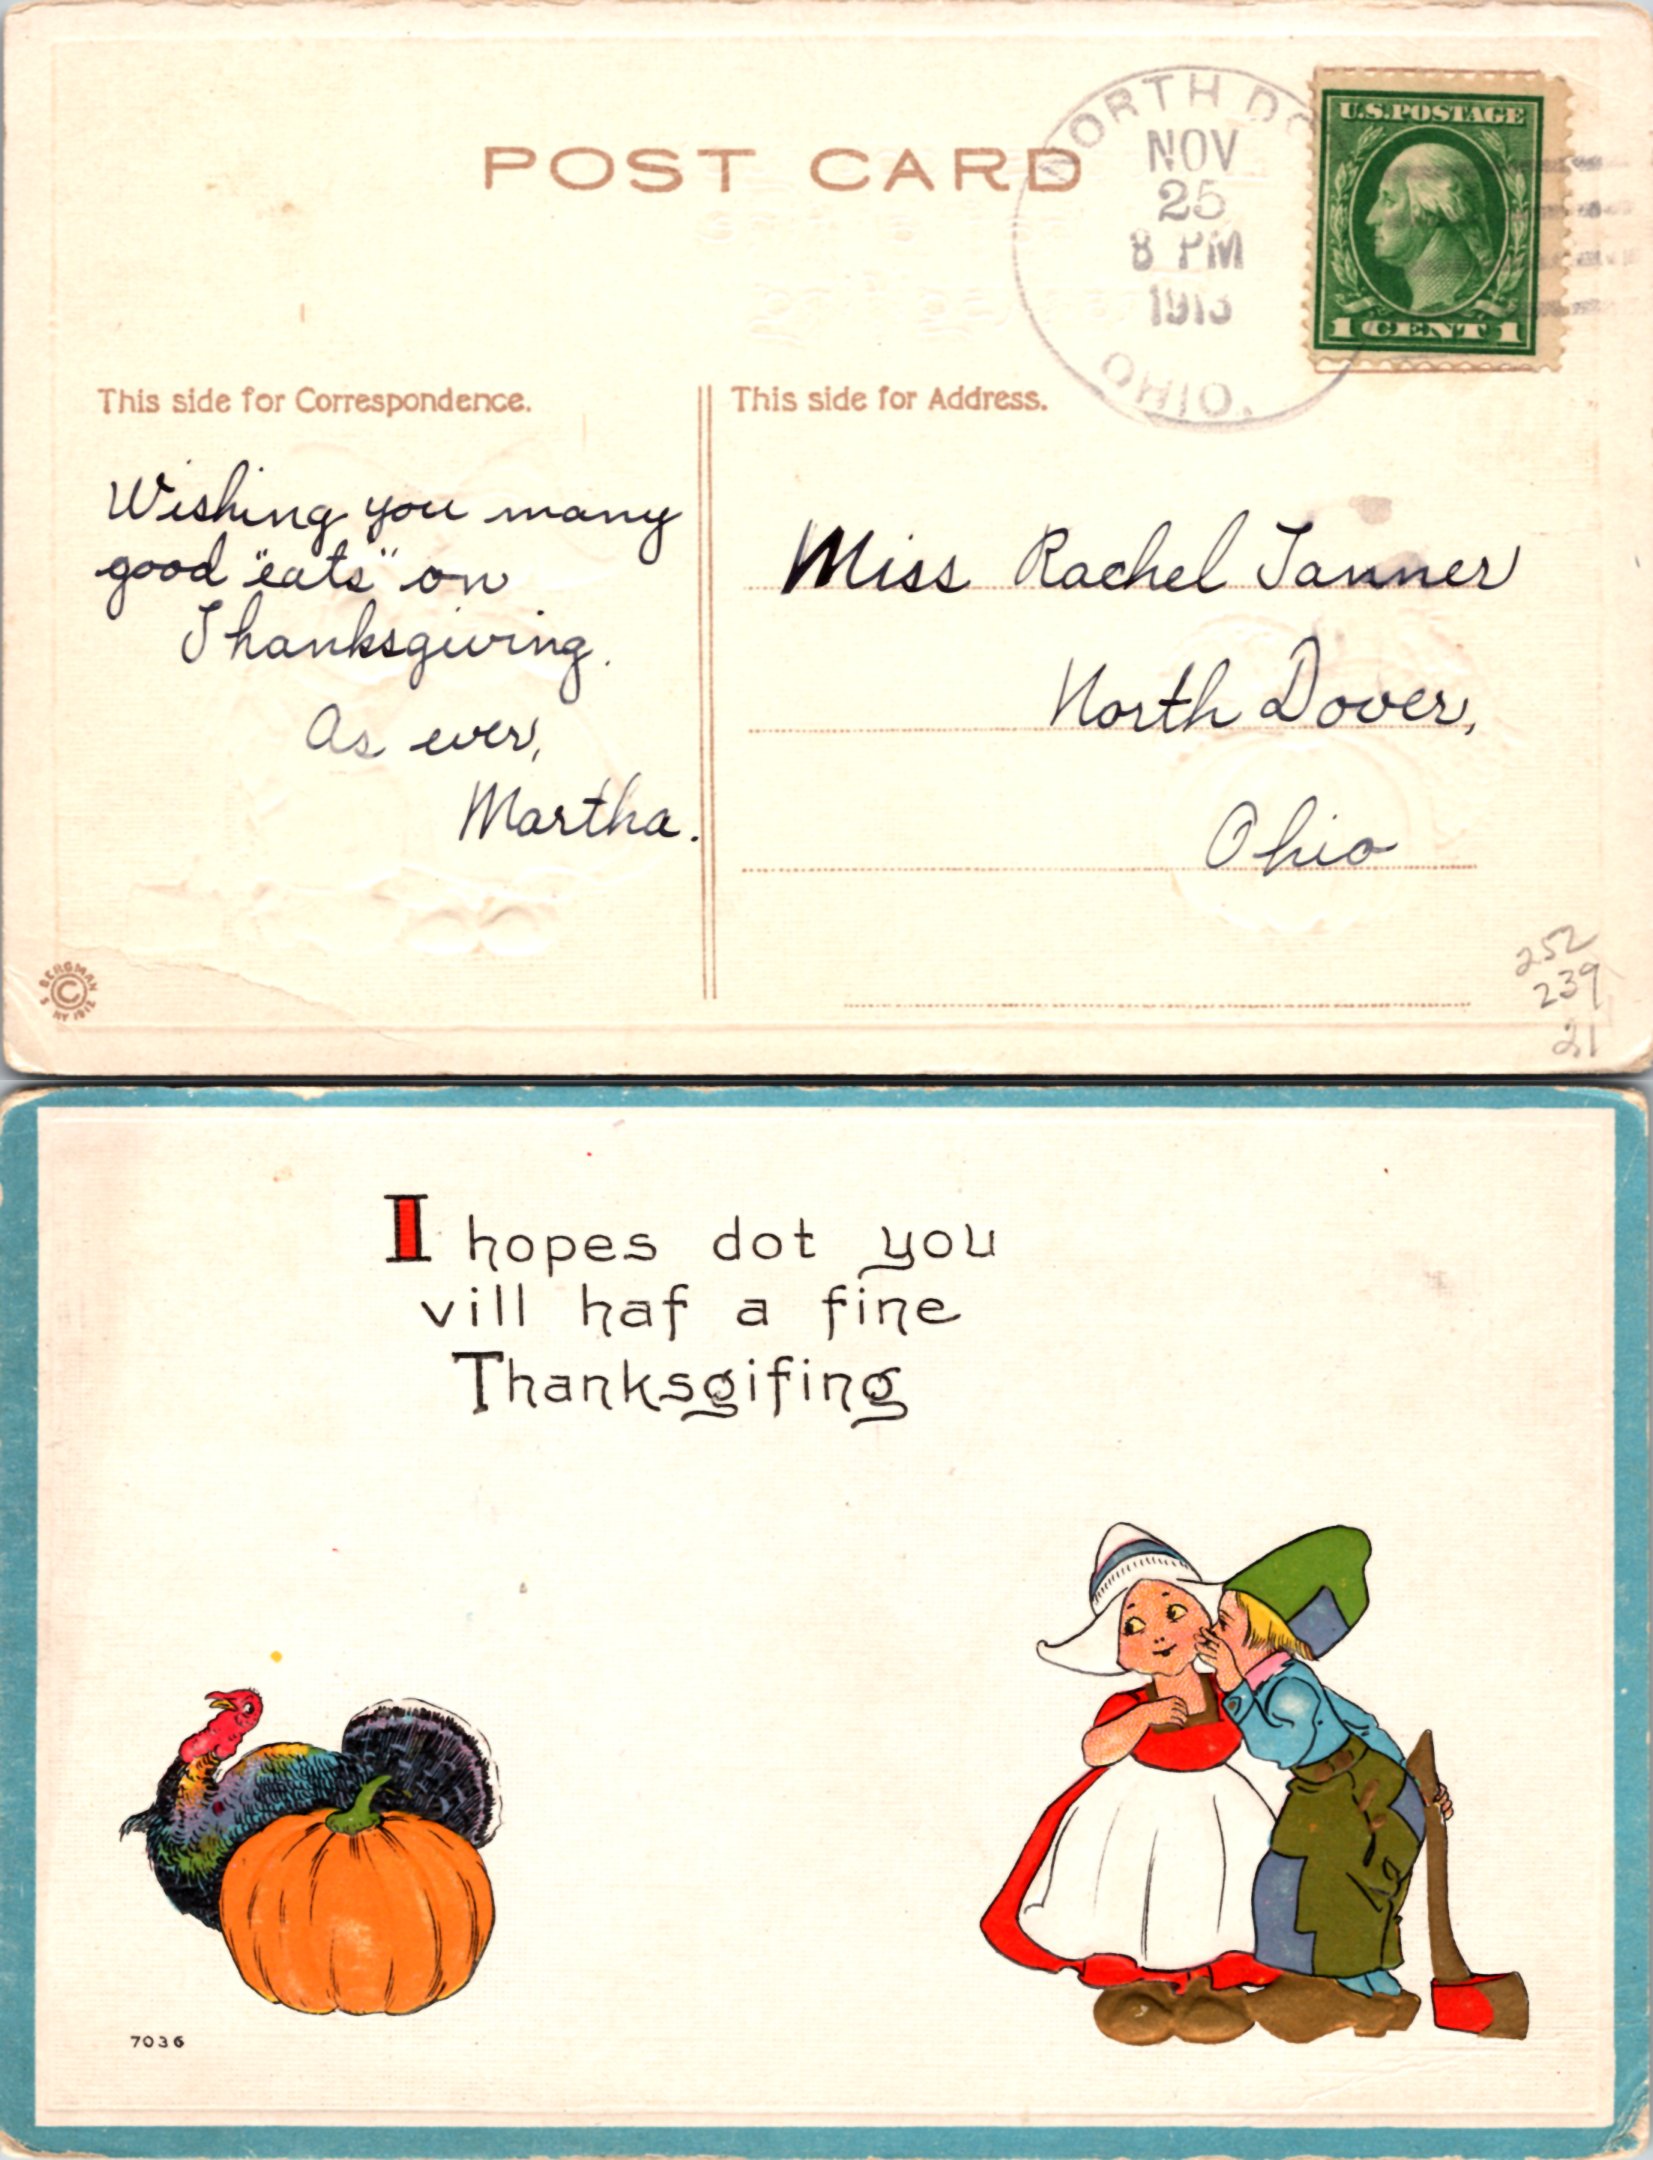 POST CARD
NORTH DO
NOV
25
8 PM
1913
OHIO.
U.S. POSTAGE
1 CENT 1
This side for Correspondence.
This side for Address.
Wishing you many
good "eats" on
Thanksgiving.
As ever,
Martha.
Miss Rachel Tanner
North Dover,
Ohio
S BERGMAN NY 1912
©
252
239
21
I hopes dot you
vill haf a fine
Thanksgifing
7036